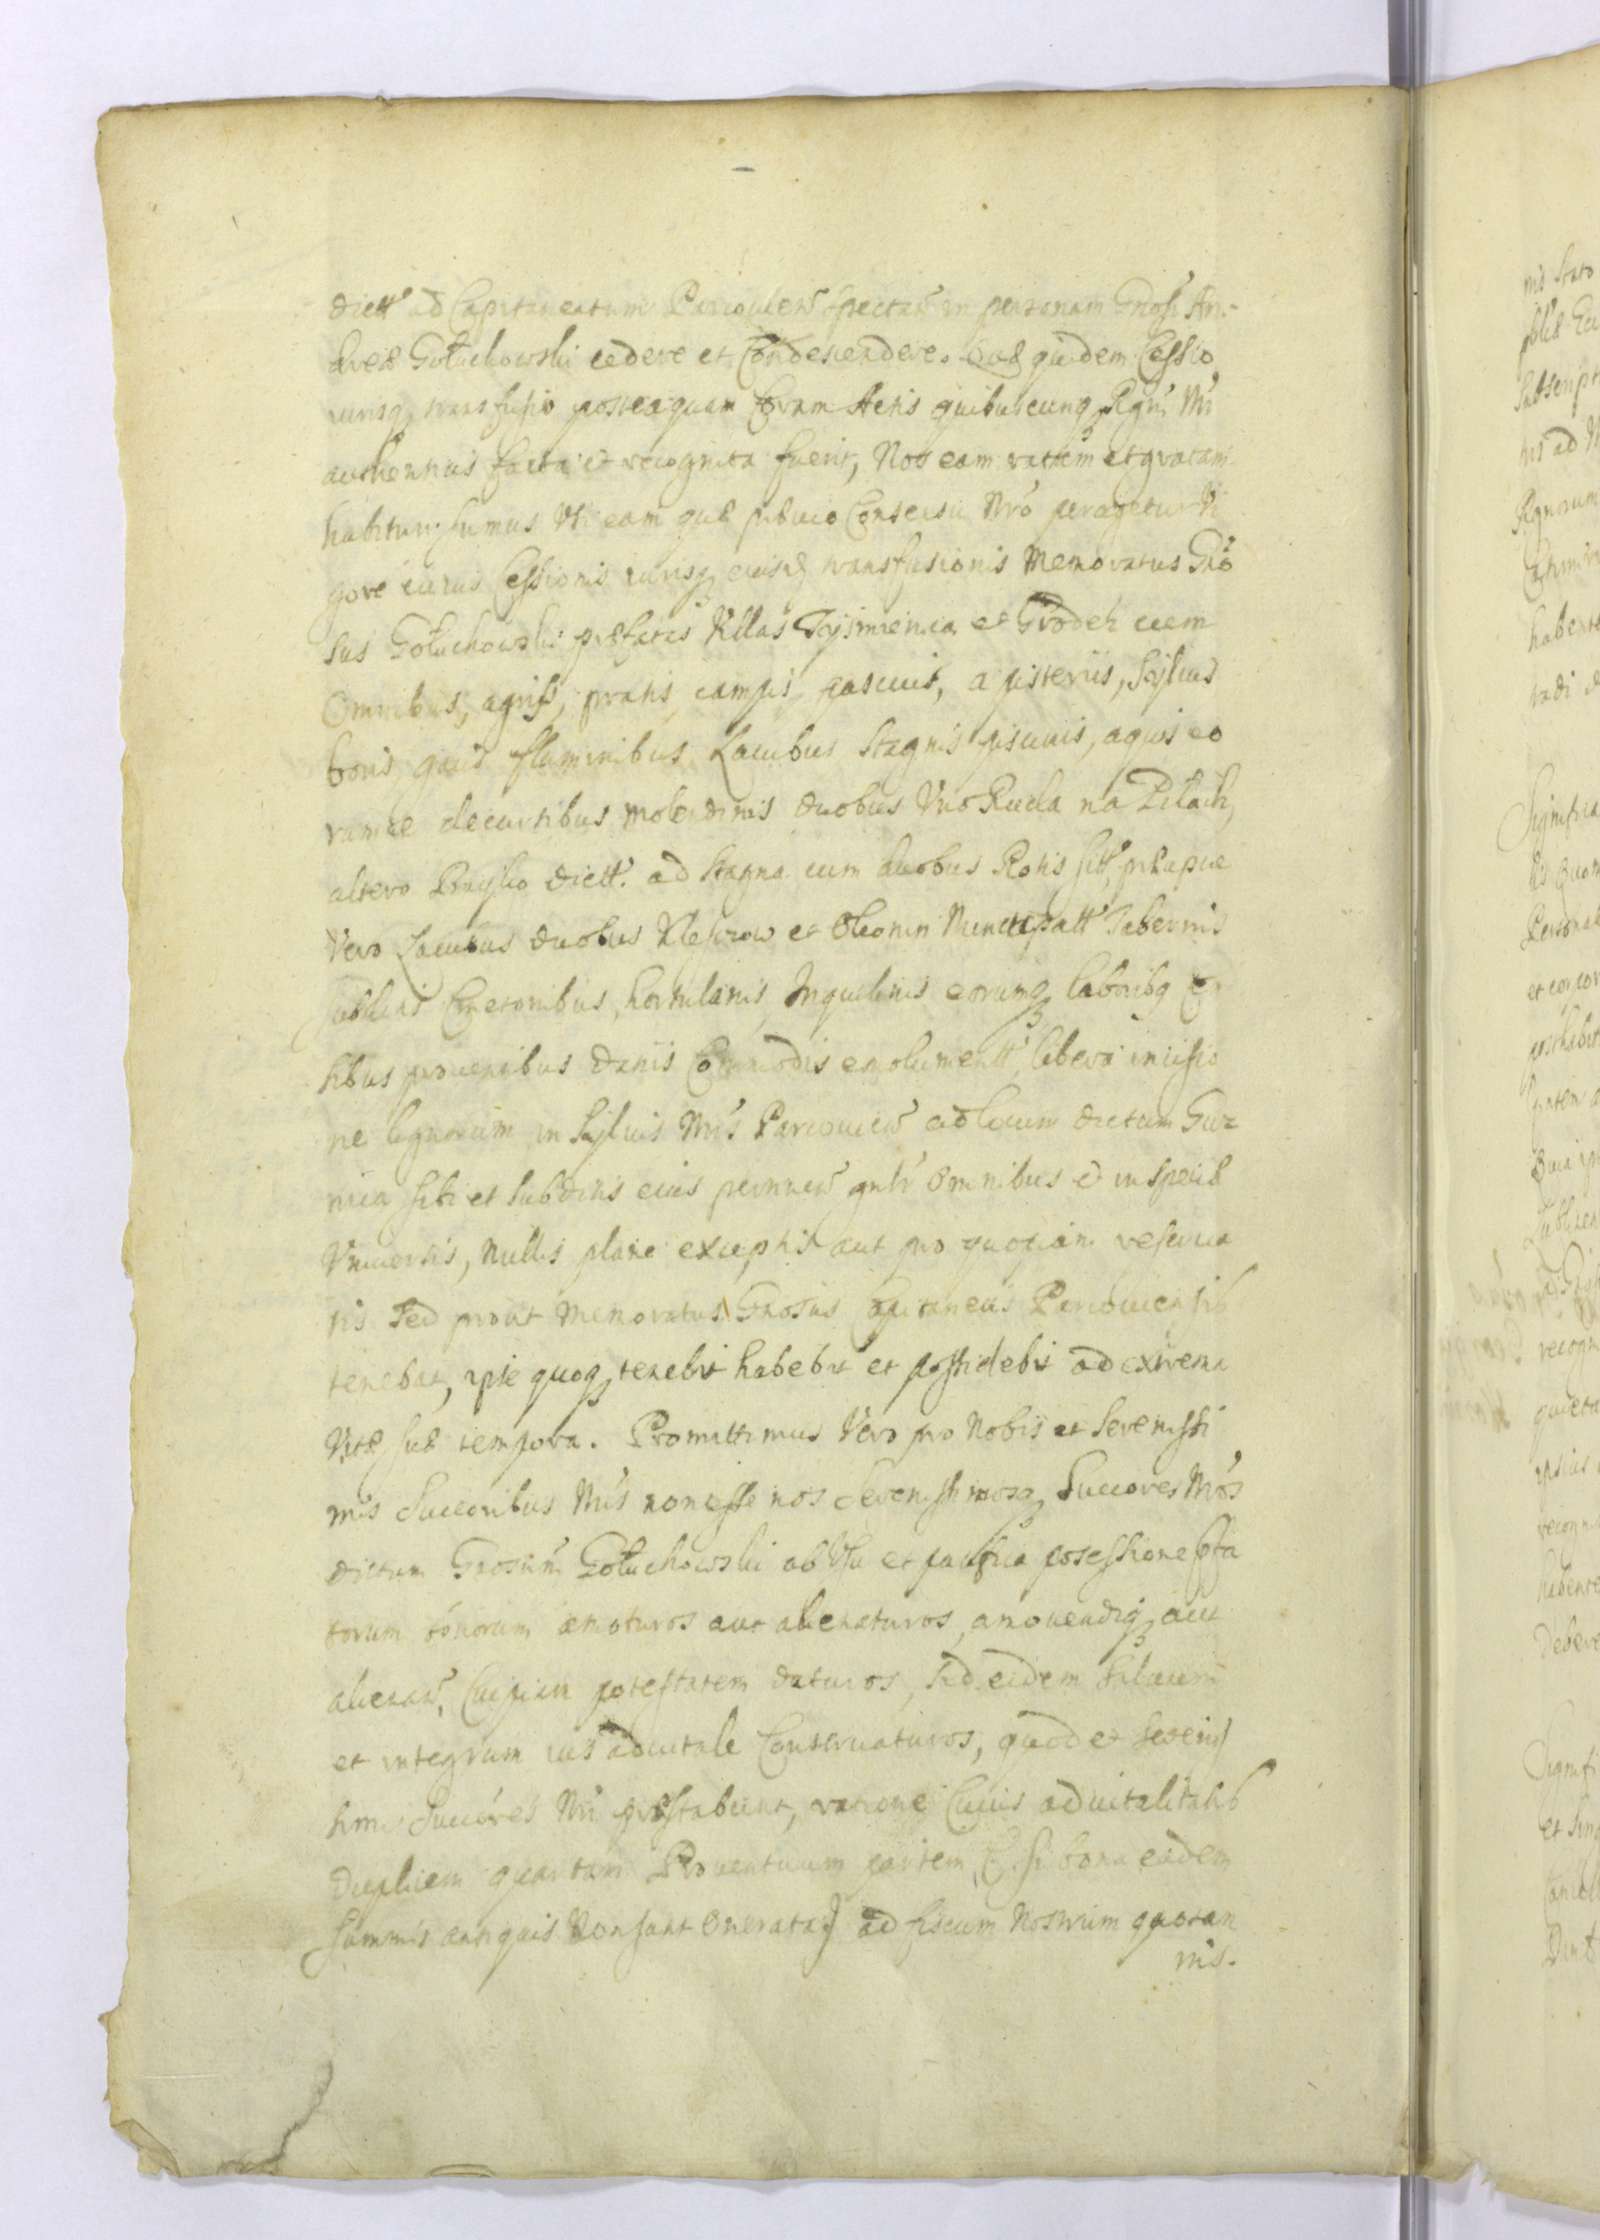 dictt ad Capitaneatum Parcouien̄ spectan̄ in personam Gnosi An-
dreæ Gołuchowski cedere et Condescendere. Quæ quidem Cessio
iurisq transfusio posteaquam Coram Actis quibuscunq Regni Nri
authenticis facta et recognita fuerit, Nos eam ratam et gratam
habituri sumus Vti eam quæ præuio Consensu Nro peragetur Vi
gore cuius Cessionis iurisq eiusd transfusionis Memoratus Gno
sus Gołuchowski præfatas Villas Tyśmienica et Grodek cum
Omnibus, agris, pratis campis pascuis, apisteriis, Syluis
boris gais fluminibus Lacubus Stagnis piscinis, aquis eo
rumue decursibus molendinis duobus Vno Ruda na Pilach,
altero Brzysko dictt. ad Stagna cum duobus Rotis sitt, præcipue
Vero Lacubus duobus Kleszczow et Obonin Nuncupatt Tabernis
Subditis Cmetonibus, hortulanis, Inquilinis eorumq laboribq Cen
sibus prouentibus daniis Commodis emolumentt, libera incisio
ne lignorum in Syluis Nris Parcouien̄ ad locum dictum Guz
nica sibi et subditis eius permnen̄ gnlr Omnibus et in specie
Vniuersis, Nullis plane exceptis aut pro quopiam reserua
tis Sed prout Memoratus Gnosus Capitaneus Parcouiensis
tenebat, ipse quoq tenebit habebit et possidebit ad extrema
Vitæ suæ tempora. Promittimus Vero pro Nobis et Serenissi
mis Succoribus Nris non esse nos Serenissimosq Succores Nros
dictum Gnosum Gołuchowski ab Vsu et pacifica posessione pfa
torum bonorum amoturos aut alienaturos, amouendiq aut
alienan̄, Cuipiam potestatem daturos, sed eidem saluum
et integrum ius aduitale Conseruaturos, quod et Sereniss
simi Succores Nri præstabunt, ratione Cuius aduitalitatis
duplicem quartam Prouentuum partem, (si bona eadem
summis antiquis Non sunt Onerata) ad fiscum Nostrum quotan
nis.